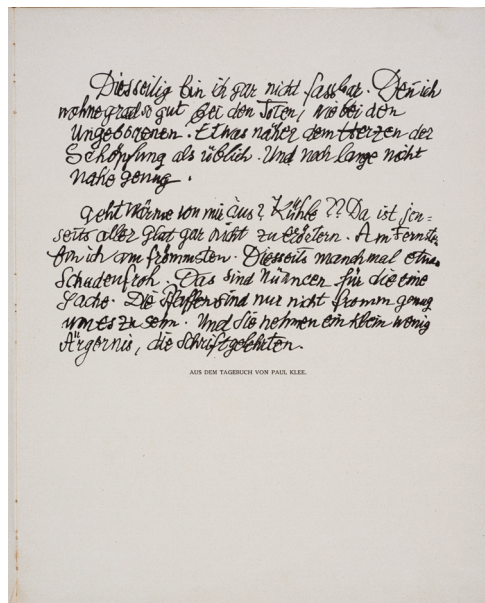 Diesseitig bin ich gar nicht fassbar. Den̅ ich
wohne grad so gut bei den Toten, wie bei den
Ungeborenen. Etwas näher dem Herzen der
Schöpfung als üblich. Und noch lange nicht
nahe genug.
Geht Wärme von mir aus? Kühle?? Da ist jen=
seits aller Glut gar nicht zu erörtern. Am Fernsten
bin ich am frömmsten. Diesseits manchmal etwas
Schadenfroh. Das sind Nüancen für die eine
Sache. Die Pfaffen sind nur nicht fromm genug
um es zu sehn. Und sie nehmen ein klein wenig
Ärgernis, die Schriftgelehrten.
AUS DEM TAGEBUCH VON PAUL KLEE.